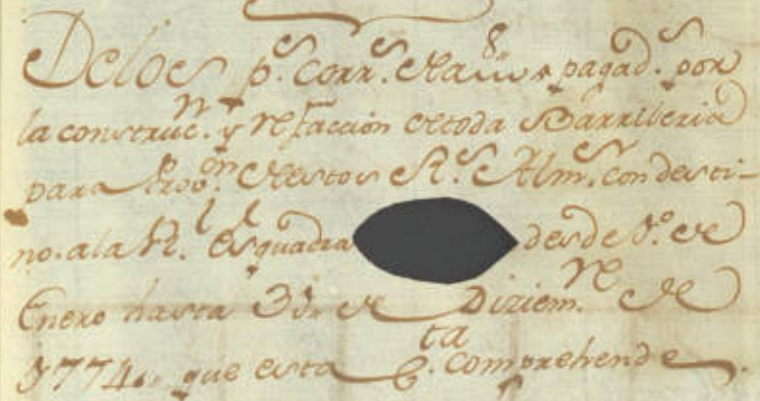 Delos p.s corr.s de a 8 r.s pagad.s por
la construc.n y refacción de toda Barrileria
para prov.on de estos R.s Alm.s con desti-
no. ala R.l Esquadra desde 1.o de
Enero hasta 31,, de Diziem.re de
1774,, que esta C.ta comprehende.